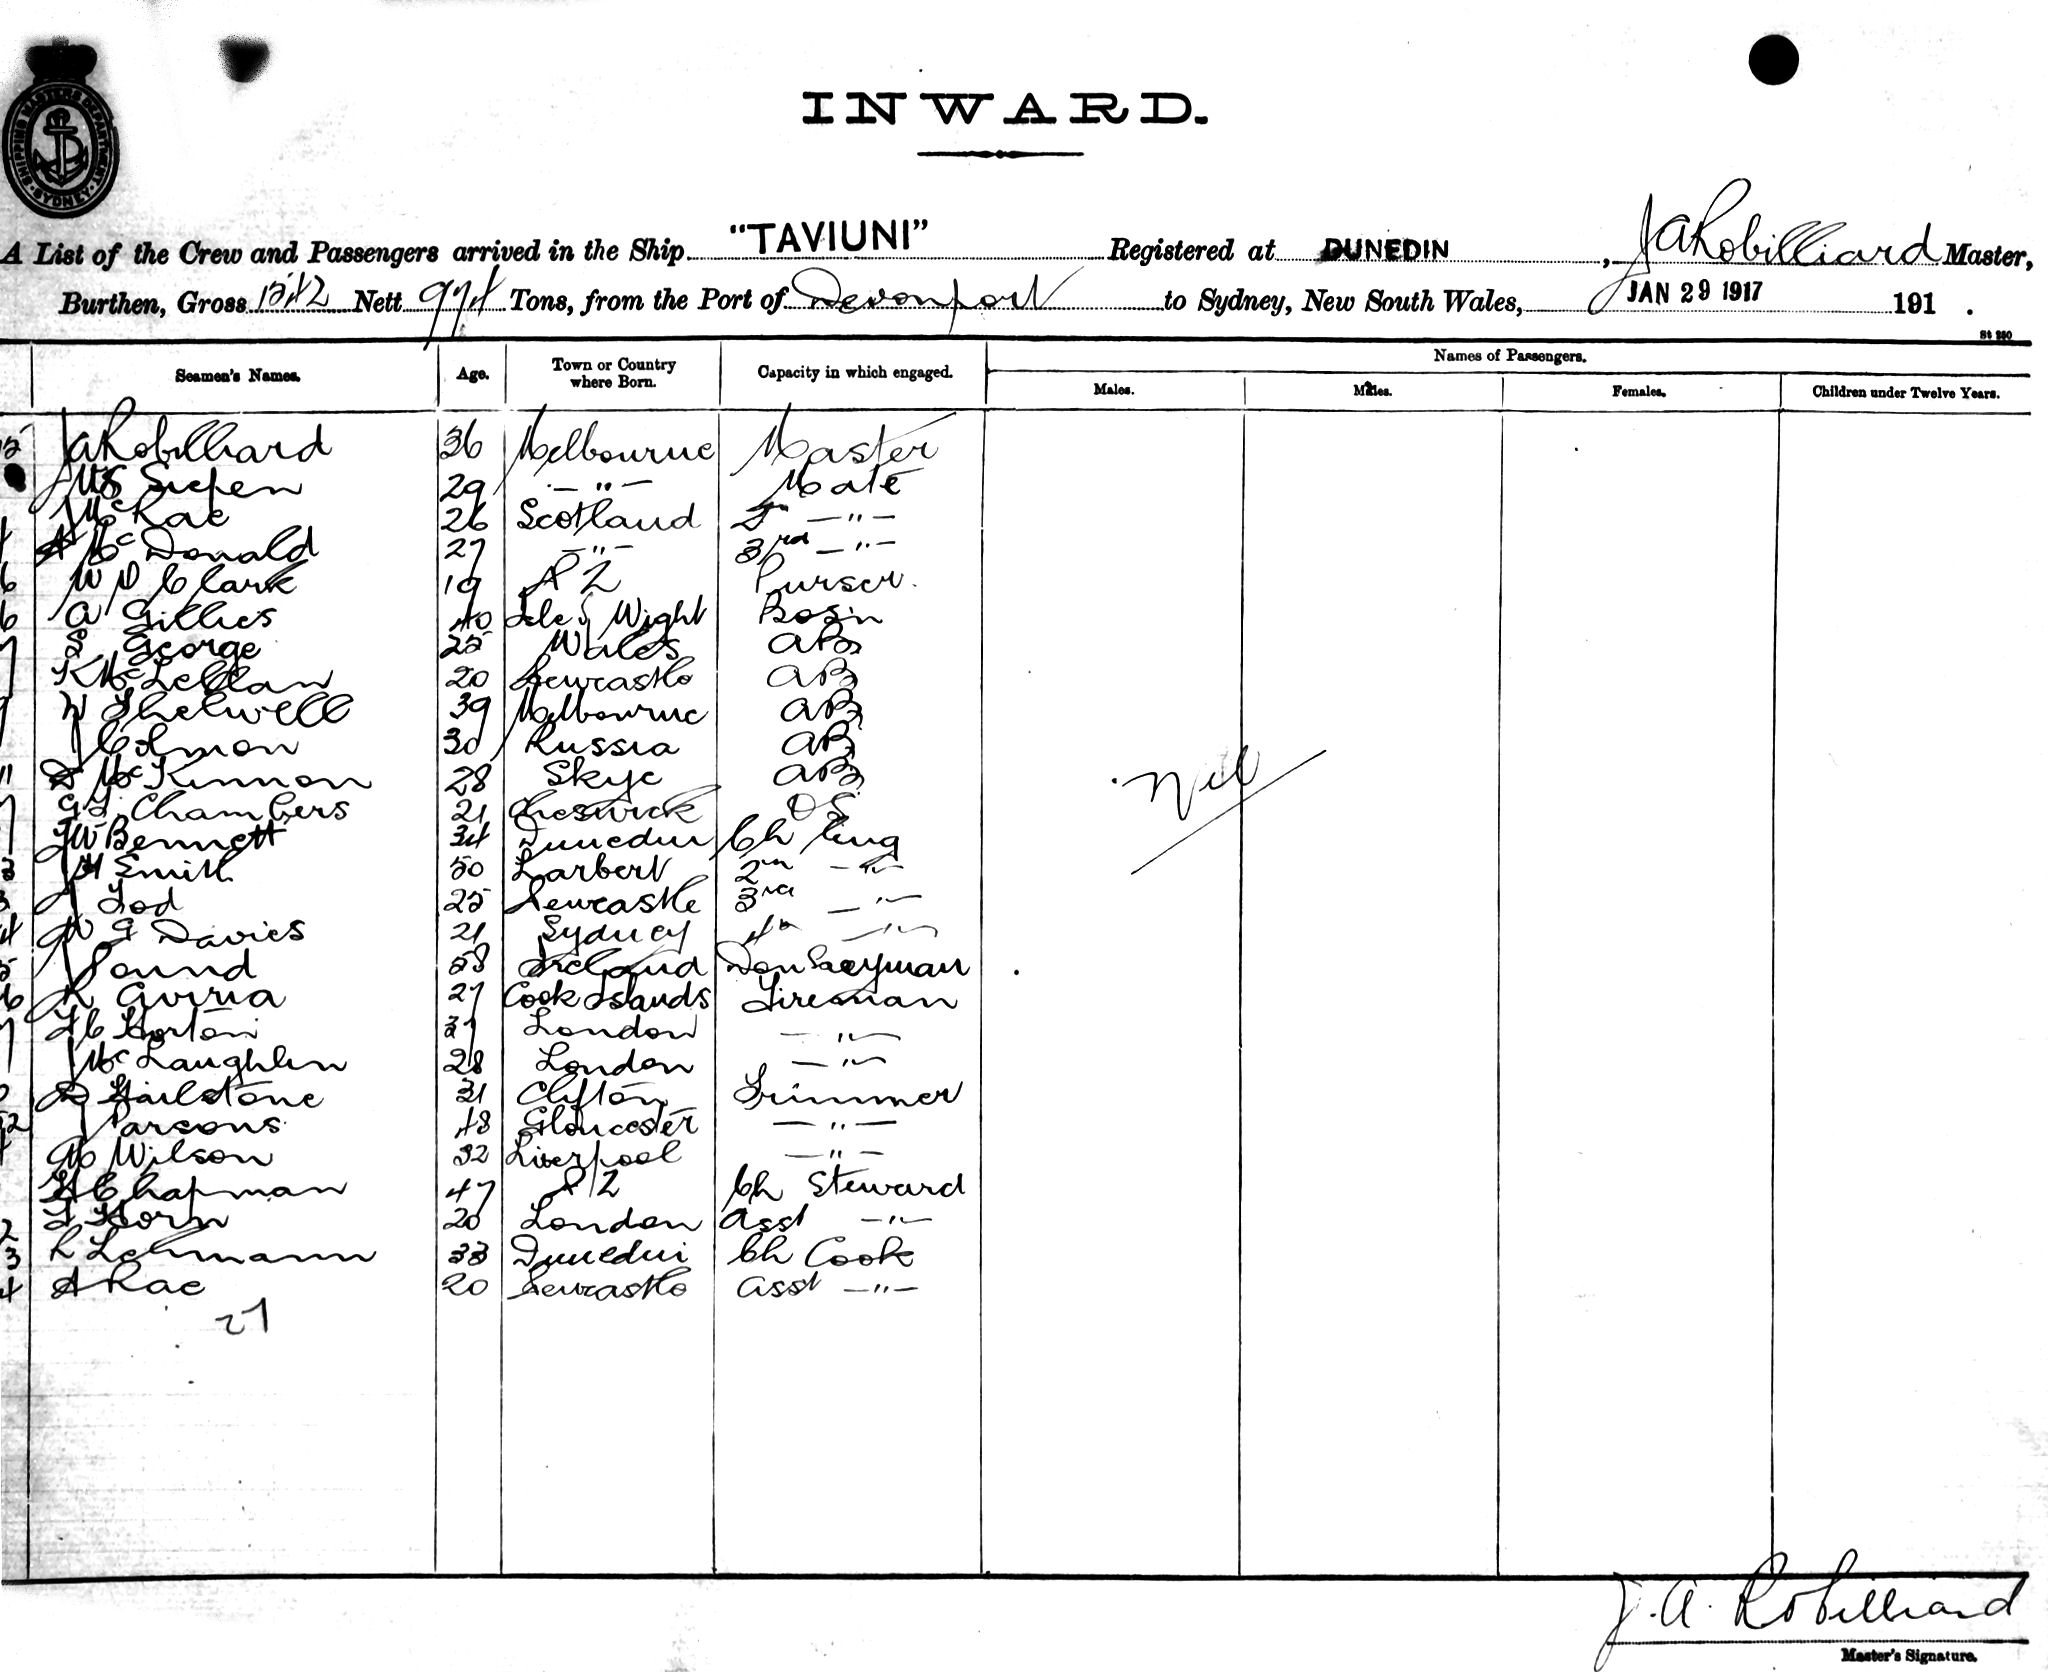 SHIPPING MASTERS DEPARTMENT SYDNEY
INWARD.
A List of the Crew and Passengers arrived in the Ship "TAVIUNI" Registered at DUNEDIN, J A Robilliard Master,
Burthen, Gross 1542 Nett 974 Tons, from the Port of Devonport to Sydney, New South Wales, JAN 29 1917 191 .
St 290
Seamen's Names. Age. Town or Country where Born. Capacity in which engaged. Names of Passengers.
Males. Males. Females. Children under Twelve Years.
J A Robilliard 36 Melbourne Master
Siepen 29 —"— Mate
McRae 26 Scotland —"—
A McDonald 27 —"— 3rd —"—
W D Clark 19 N Z Purser.
A Gillies 40 Isle of Wight Bosn
S George 25 Wales AB
K McLellan 20 Newcastle AB
W Thelwell 39 Melbourne AB
30 Russia AB
D McKinnon 28 Skye AB
G F Chambers 21 Cheswick OS
J W Bennett 34 Dunedin Ch Eng
H Smith 50 Larbert 2nd —"—
J Tod 25 Newcastle 3rd —"—
W G Davies 21 Sydney 4th —"—
J Pound 58 Ireland Donkeyman
K Aviria 27 Cook Islands Fireman
F C Horton 37 London —"—
J McLaughlin 28 London —"—
D Hailstone 31 Clifton Trimmer
J Parsons 48 Gloucester —"—
W Wilson 32 Liverpool —"—
H Chapman 47 N Z Ch Steward
F Horn 20 London Asst —"—
L Lehmann 33 Dunedin Ch Cook
A Rae 20 Newcastle Asst —"—
27
Nil
J. A. Robilliard
Master's Signature.